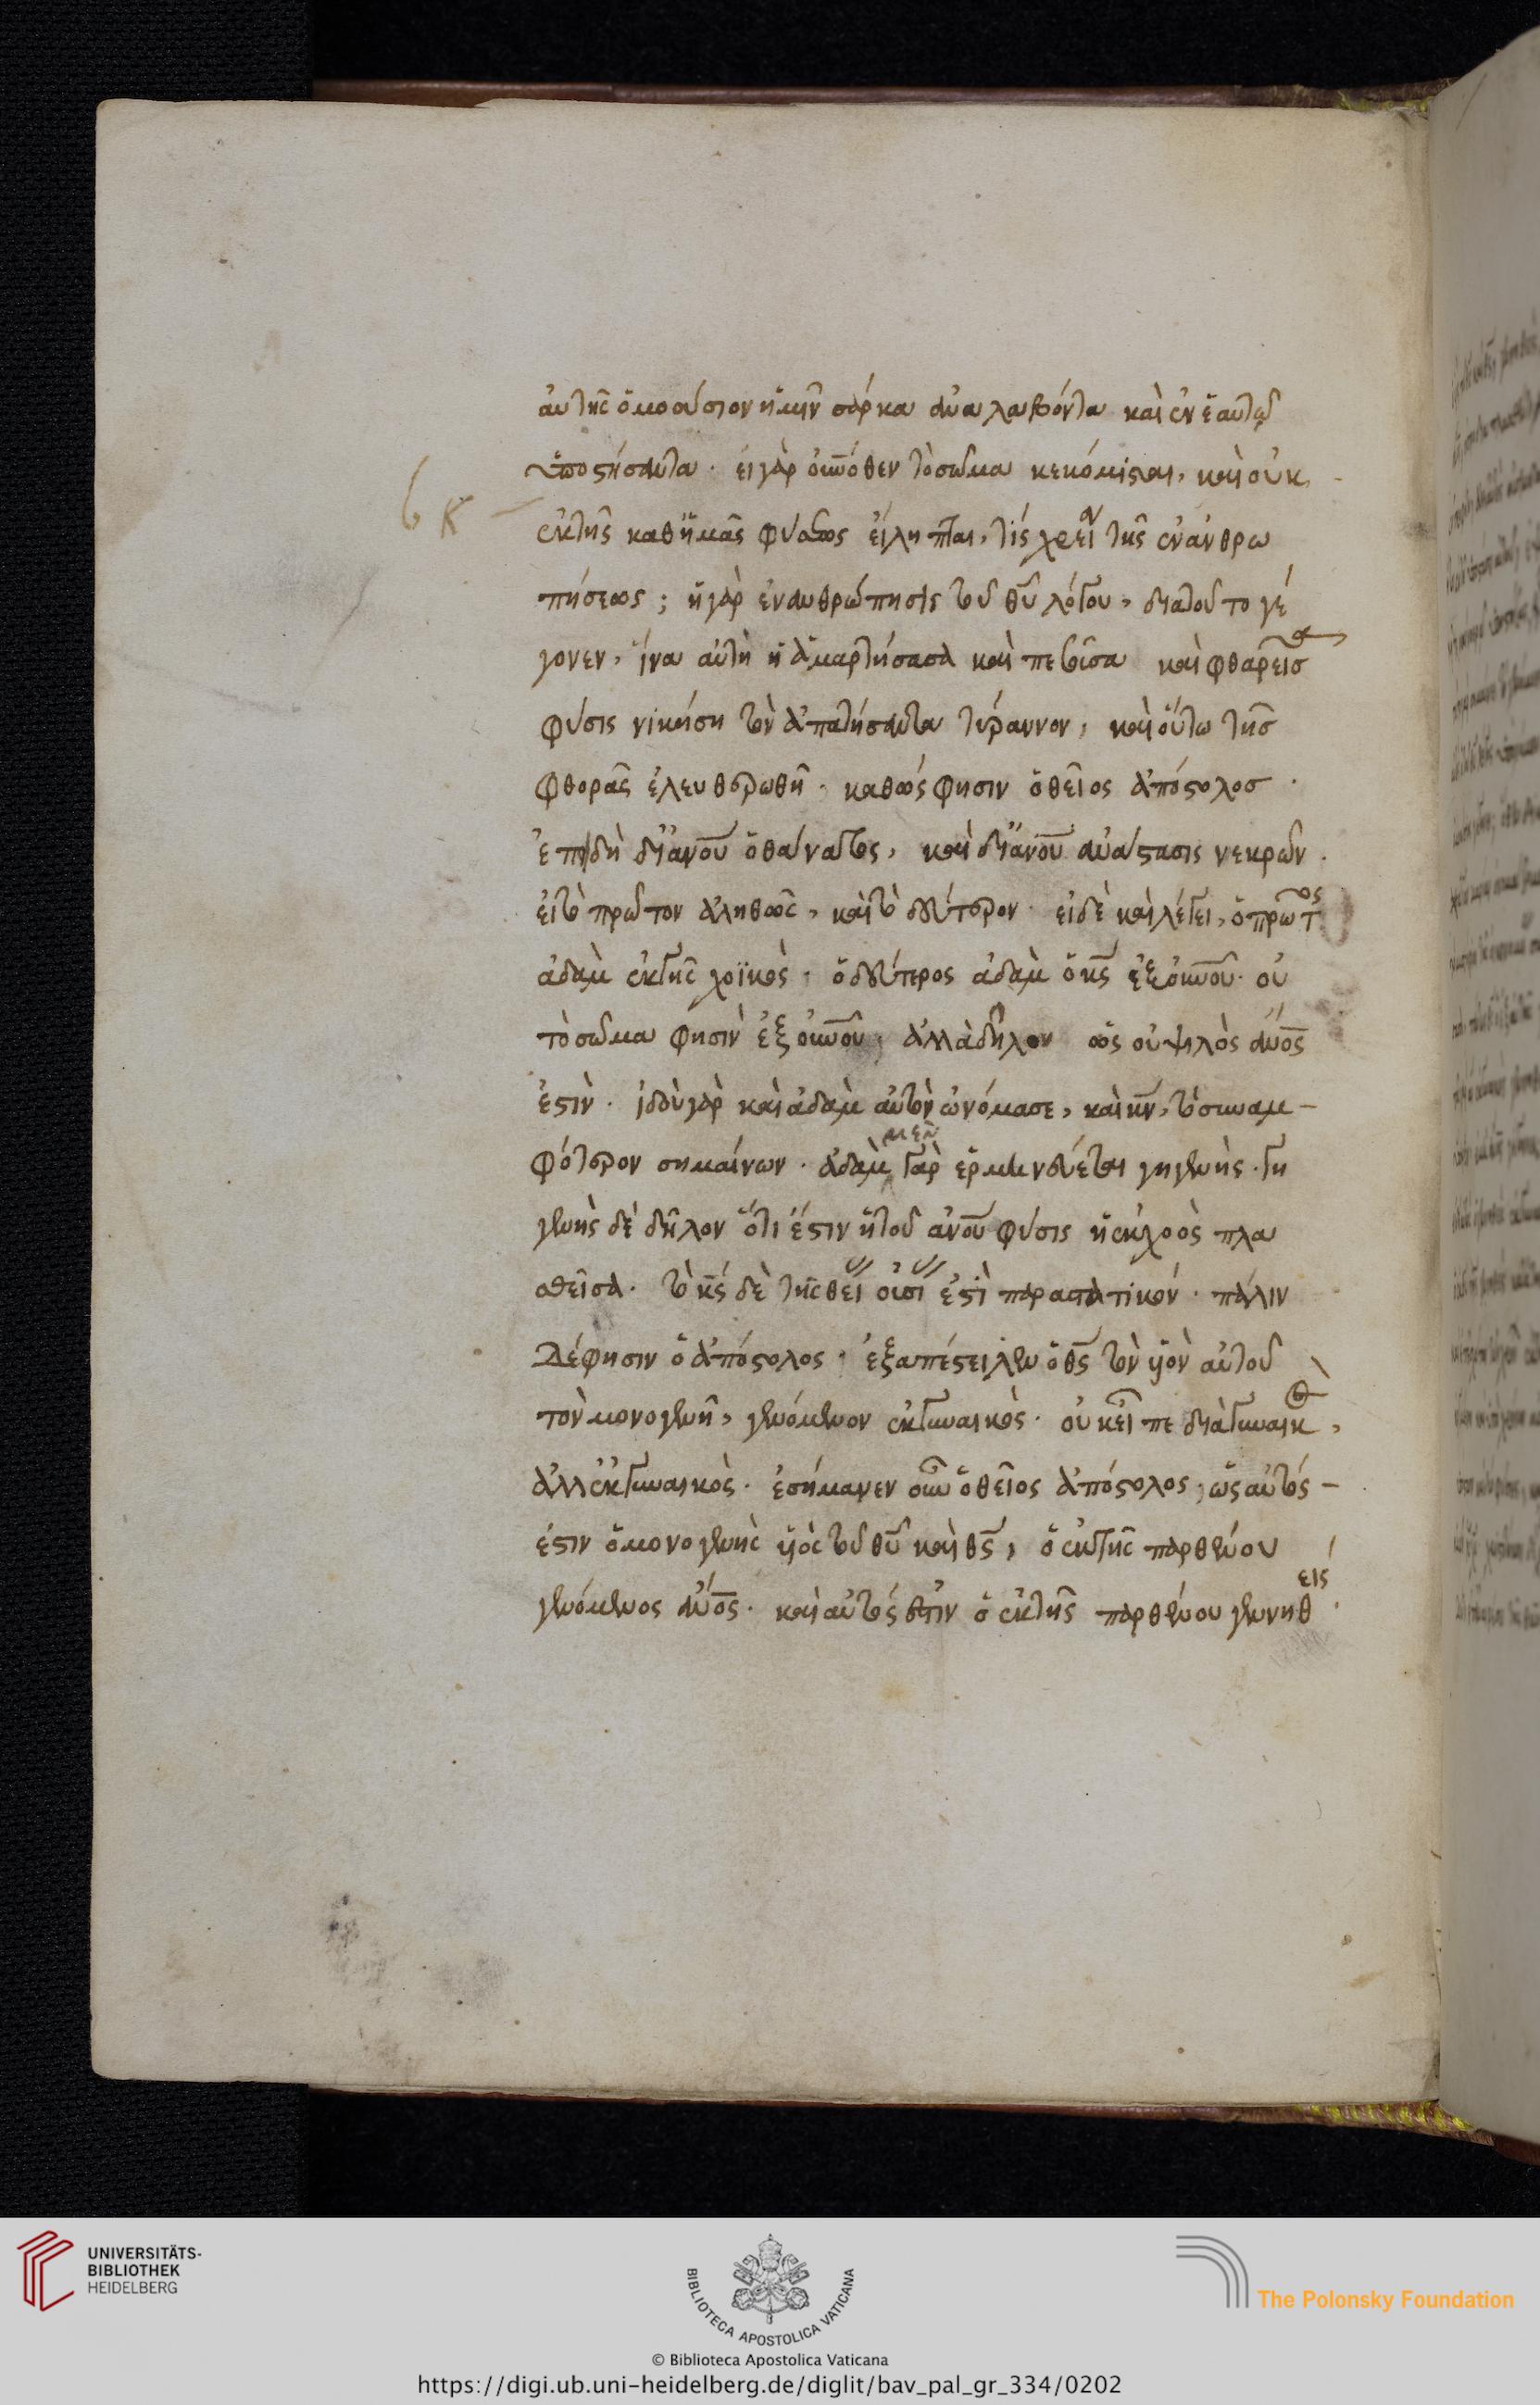 αὐτῆς ὁμοούσιον ἡμῖν σάρκα ἀναλαβόντα καὶ ἐν ἑαυτῷ
ὑποστήσαντα· εἰ γὰρ οὐνόθεν τὸ σῶμα κεκόμισται, καὶ οὐκ
ἐκ τῆς καθ' ἡμᾶς φύσεως εἴληπται, τίς χρεία τῆς ἐνανθρω
πήσεως; ἡ γὰρ ἐνανθρώπησις τοῦ θυ λόγου, δια τοῦτο γέ
γονεν, ἵνα αὐτὴ ἡ ἁμαρτήσασα καὶ πεσοῦσα καὶ φθαρεῖσα
φύσις νικήση τὸν ἀπατήσαντα τύραννον, καὶ οὕτω τῆς
φθορᾶς ἐλευθερωθῆ· καθώς φησιν ὁ θεῖος ἀπόστολος·
ἐπειδὴ δι' ἀνου ὁ θάνατος, καὶ δι' ἀνου ἀνάστασις νεκρῶν·
εἰ τὸ πρῶτον ἀληθῶς, καὶ τὸ δεύτερον· εἰ δὲ καὶ λέγει, ὁ πρῶτος
ἀδὰμ ἐκ γῆς χοϊκὸς· ὁ δεύτερος ἀδὰμ ὁ κς ἐξ οὐνου· οὐ
τὸ σῶμα φησὶν ἐξ οὐνου, ἀλλὰ δῆλον ὡς οὐ ψιλὸς ἀνος
ἐστὶν· ἰδοὺ γὰρ καὶ ἀδὰμ αὐτὸν ὠνόμασε, καὶ κν, τὸ συναμ-
φότερον σημαίνων· ἀδὰμ μὲν γὰρ ἑρμηνεύεται γηγενὴς· γη
γενὴς δὲ δῆλον ὅτι ἐστὶν ἡ τοῦ ἀνου φύσις ἡ ἐκ χοὸς πλα
σθεῖσα· τὸ κς δὲ τῆς θείας οὐσίας ἐστὶ παραστατικόν· πάλιν
δέ φησιν ὁ ἀπόστολος· ἐξαπέστειλεν ὁ θς τὸν υἱὸν αὐτοῦ
τὸν μονογενῆ, γενόμενον ἐκ γυναικὸς· οὐκ εἶπε διὰ γυναικὸς,
ἀλλ' ἐκ γυναικὸς· ἐσήμανεν οὖν ὁ θεῖος ἀπόστολος, ὡς αὐτός-
ἐστιν ὁ μονογενὴς υἱὸς τοῦ θυ καὶ θς, ὁ ἐκ τῆς παρθένου
γενόμενος ἀνος· καὶ αὐτός ἐστιν ὁ ἐκ τῆς παρθένου γεννηθείς·
UNIVERSITÄTS-
BIBLIOTHEK
HEIDELBERG
BIBLIOTECA APOSTOLICA VATICANA
The Polonsky Foundation
© Biblioteca Apostolica Vaticana
https://digi.ub.uni-heidelberg.de/diglit/bav_pal_gr_334/0202